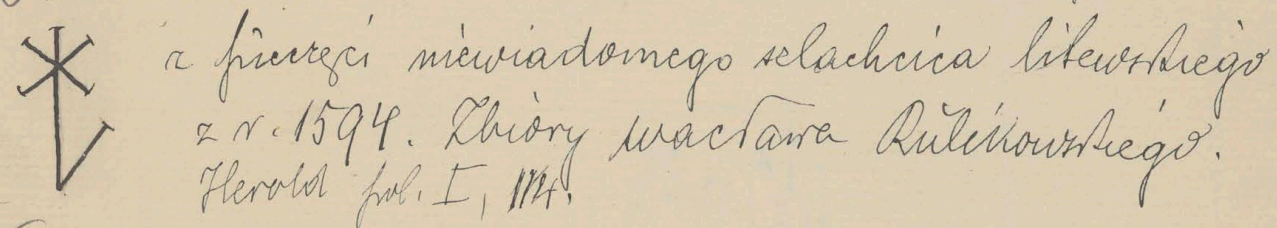 z pieczęci niewiadomego szlachcica litewskiego
z r. 1594. Zbiory Wacława Rulikowskiego.
Herold fol. I,